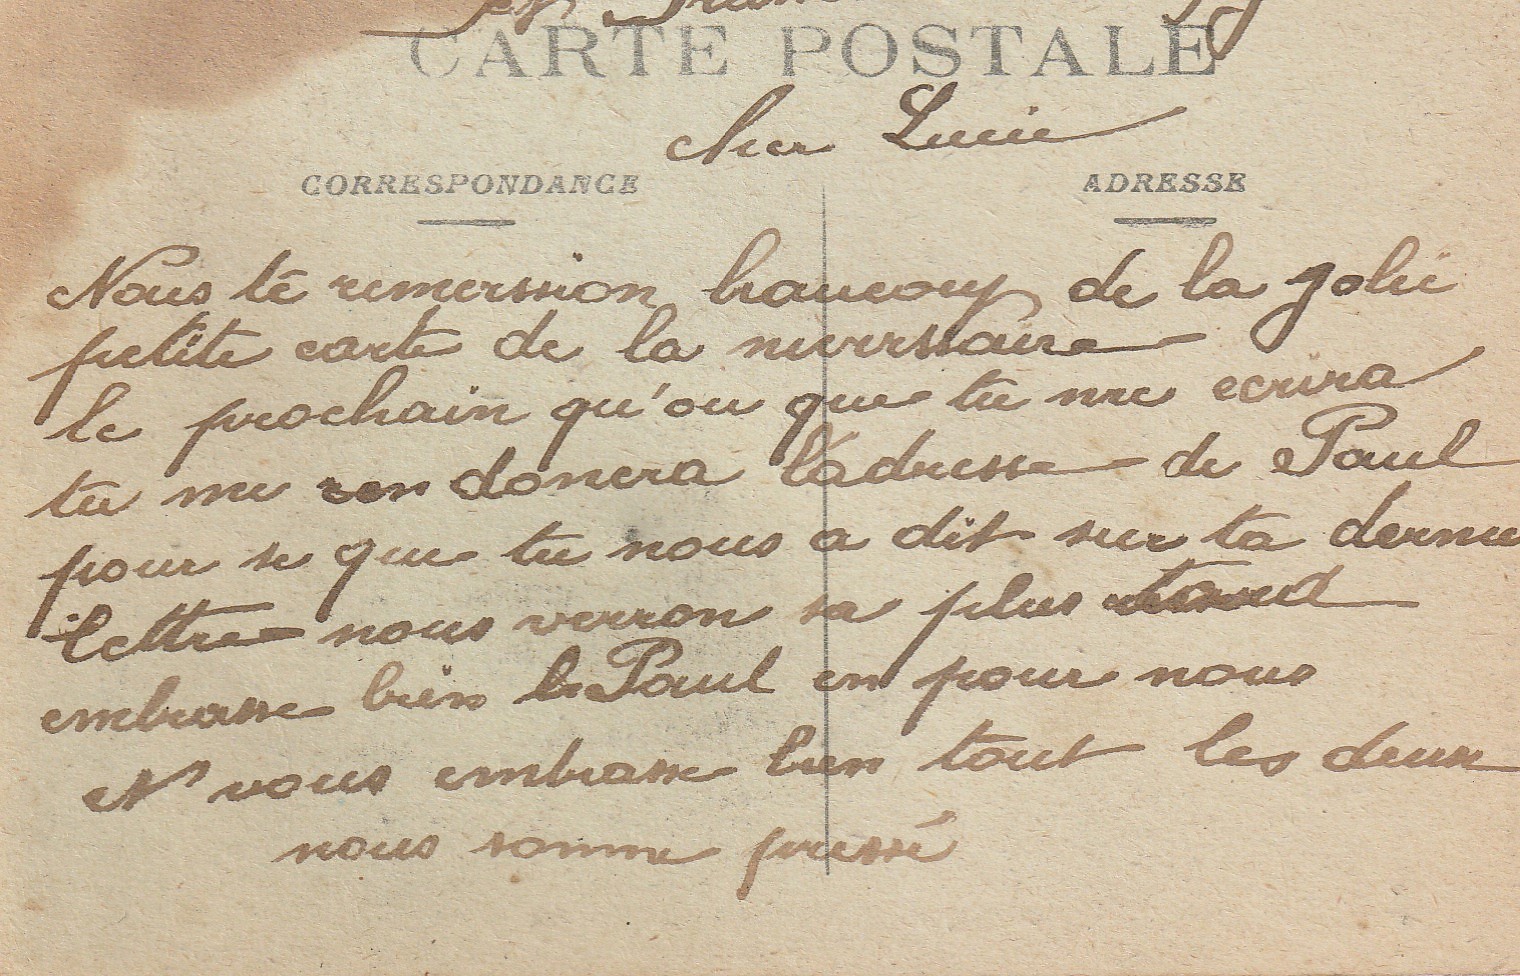 CARTE POSTALE
cher Lucie
CORRESPONDANCE
ADRESSE
Nous te remersion beaucoup de la jolie
petite carte de la niverssaire
le prochain qu'ou que tu me ecrira
tu me ren donera l'adresse de Paul
pour se que tu nous a dit sur ta dernie
lettre nous verron sa plus tard
embrasse bien le Paul en pour nous
Ns vous embrasse bien tout les deux
nous somme pressé